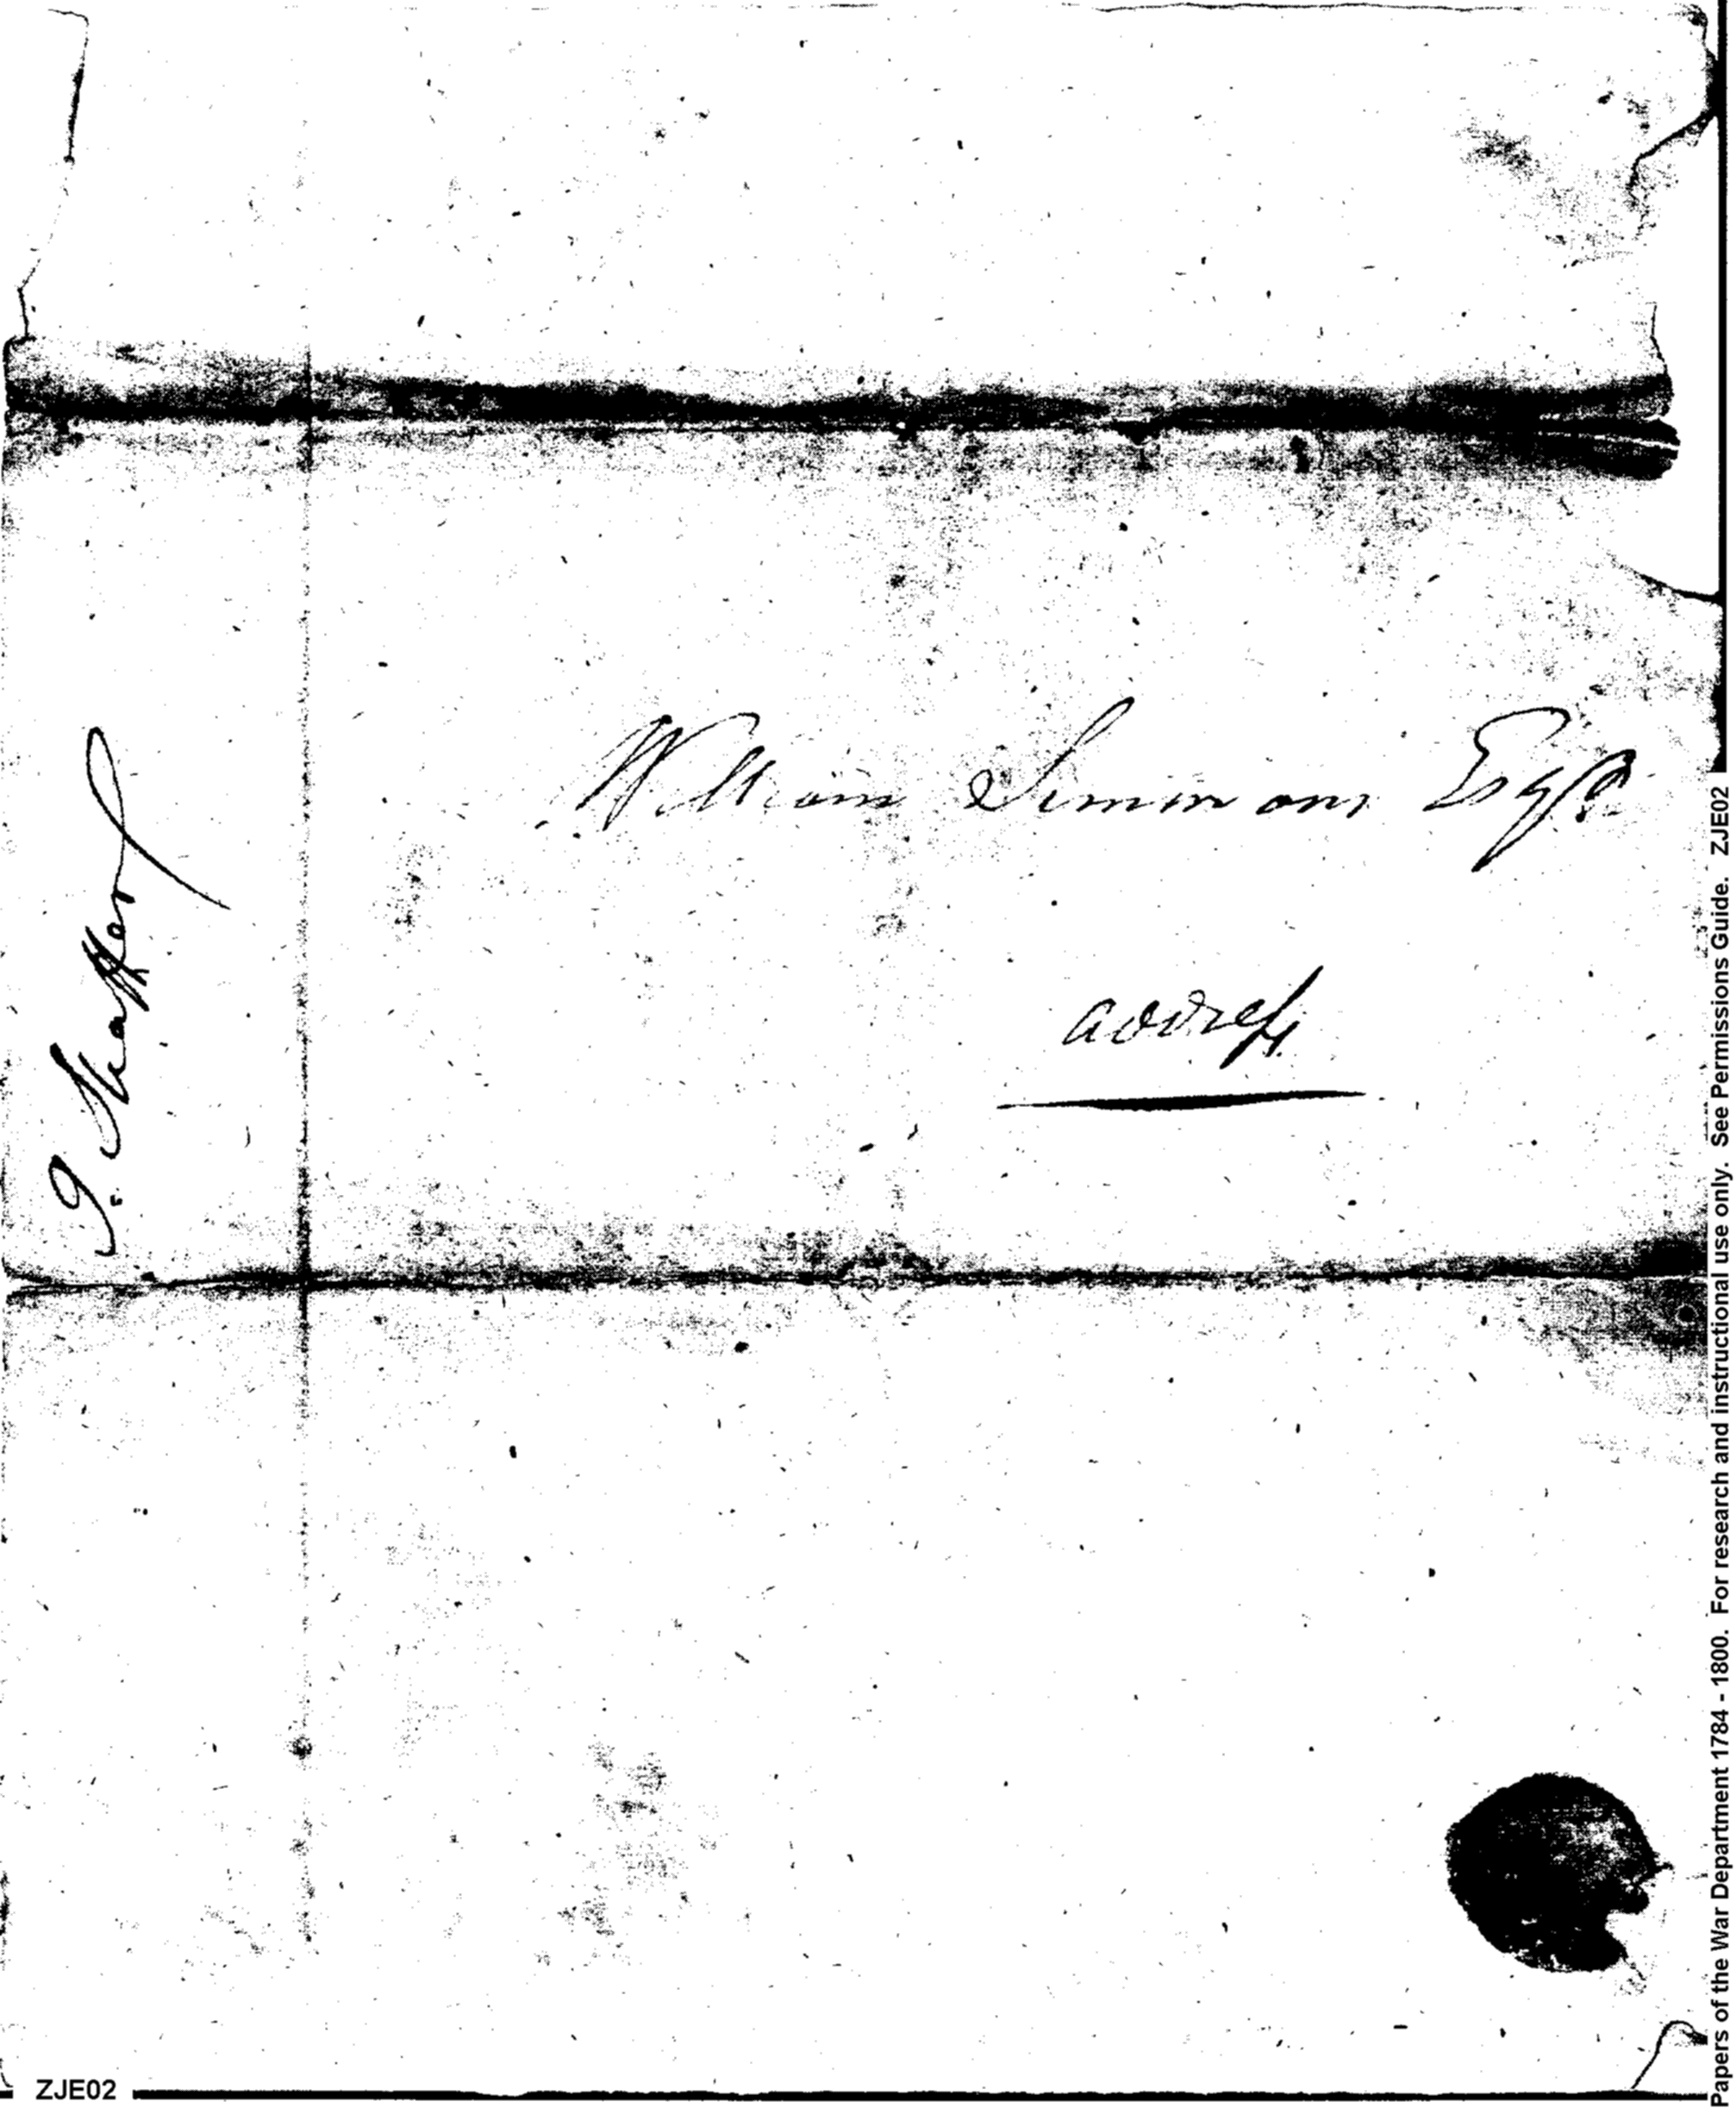 William Simmons Esqr.
address
ZJE02
Papers of the War Department 1784 - 1800. For research and instructional use only. See Permissions Guide. ZJE02